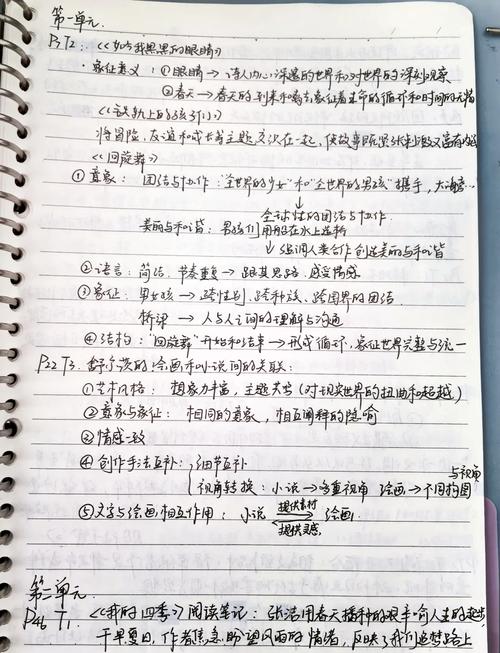 第一单元.
P5 T2: 《如果我黑黑的眼睛》
· 象征意义: ①眼睛→诗人内心深邃的世界和对世界的深刻观察
②春天→春天的到来和离去象征着生命的循环和时间的无情
《铁轨上的孩子们》
将冒险、友谊和成长等主题交织在一起, 使故事既紧张刺激又富有
《回旋舞》
①意象: 团结与协作: "全世界的少女"和"全世界的男孩"携手, 大海旁…
↓
全球性的团结与协作
美丽与和谐: 男孩们用船在水上连桥
↳强调人类合作创造美丽与和谐
②语言: 简洁. 节奏重复→跟其思路. 感受情感
③象征: 男女孩→跨性别. 跨种族、跨国界的团结.
桥梁→人与人之间的理解与沟通
④结构: "回旋舞"开始和结束→形成循环, 象征世界完整与统一
P22 T3. 舒尔茨的绘画和小说间的关联:
①艺术风格: 想象力丰富, 主题夹杂(对现实世界的扭曲和超越)
②意象与象征: 相同的意象, 相互阐释的隐喻
③情感一致
与视角
④创作手法互补: 细节互补
视角转换: 小说→多重视角 绘画→不同构图
⑤文字与绘画相互作用: 小说 提供素材 提供灵感 绘画.
第二单元
P46 T1. 《我的四季》阅读笔记: 张洁用春天播种的艰辛喻人生的起步,
干旱夏日, 作者焦急盼望风雨的情绪, 反映了我们追梦路上